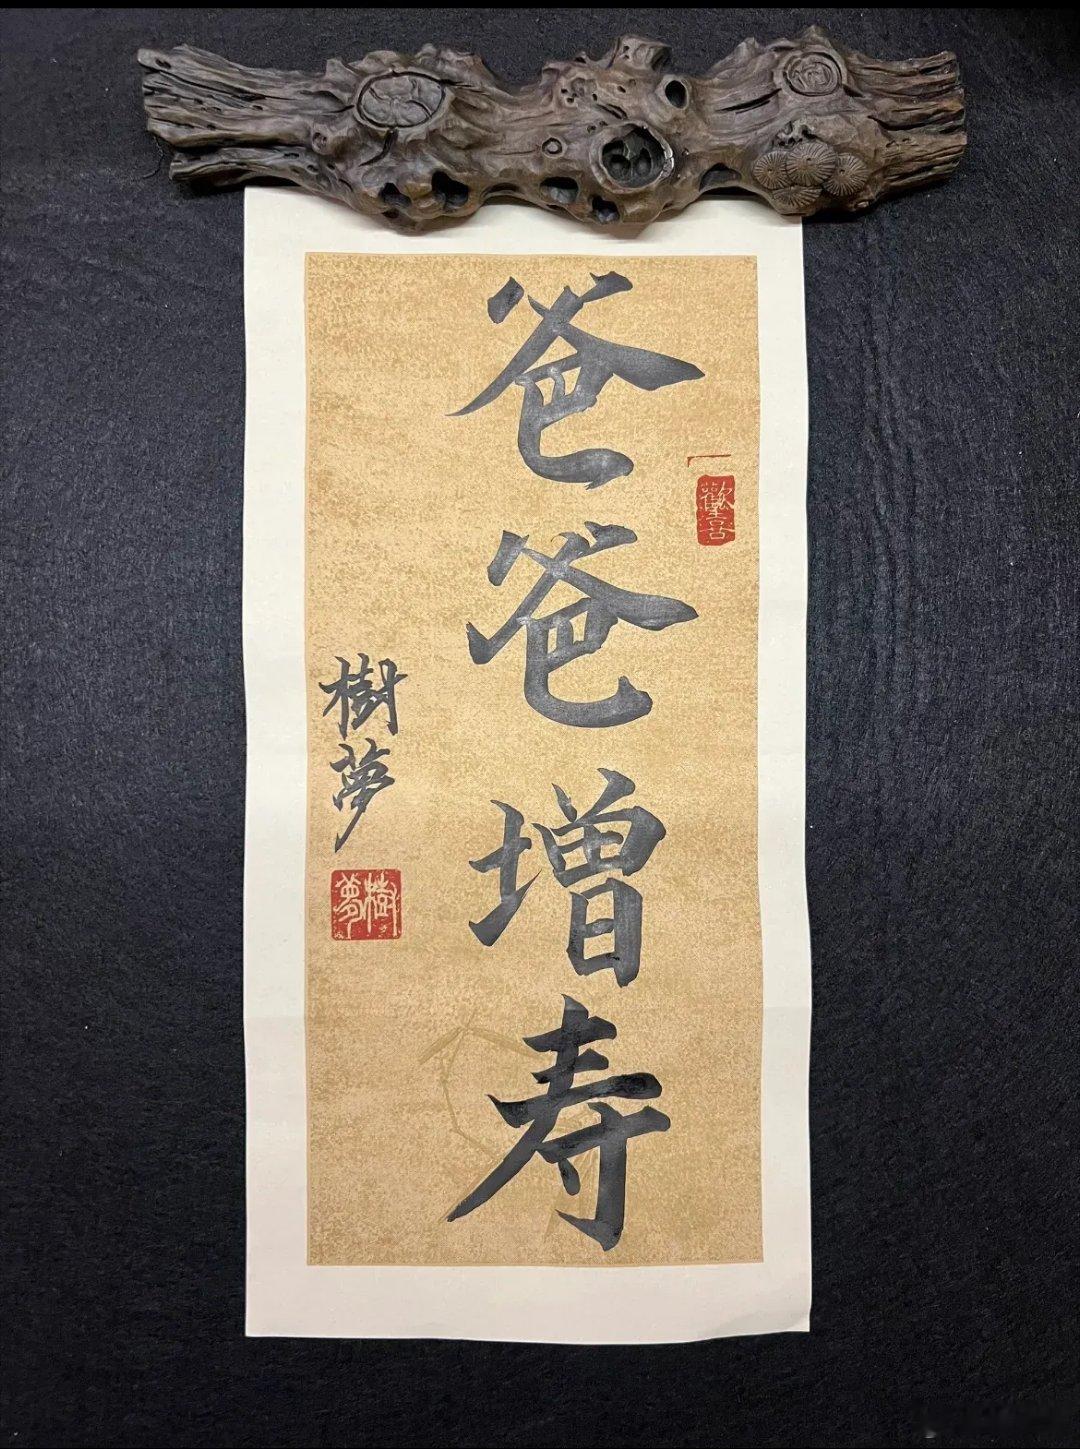 爸爸增寿
歡喜
樹夢
樹夢